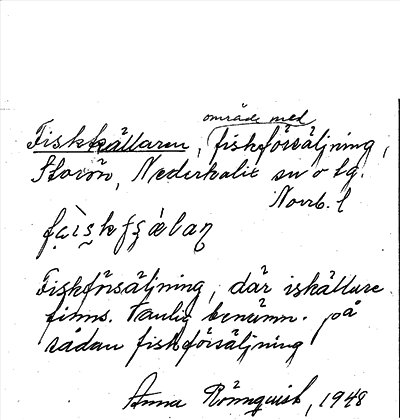 område med
Fiskkällaren, fiskförsäljning,
Storön, Nederkalix sn o tg.
Norrb. l
Fiskförsäljning, där iskällare
finns. Vanlig benämn. på
sådan fiskförsäljning
Anna Rönnquist, 1948